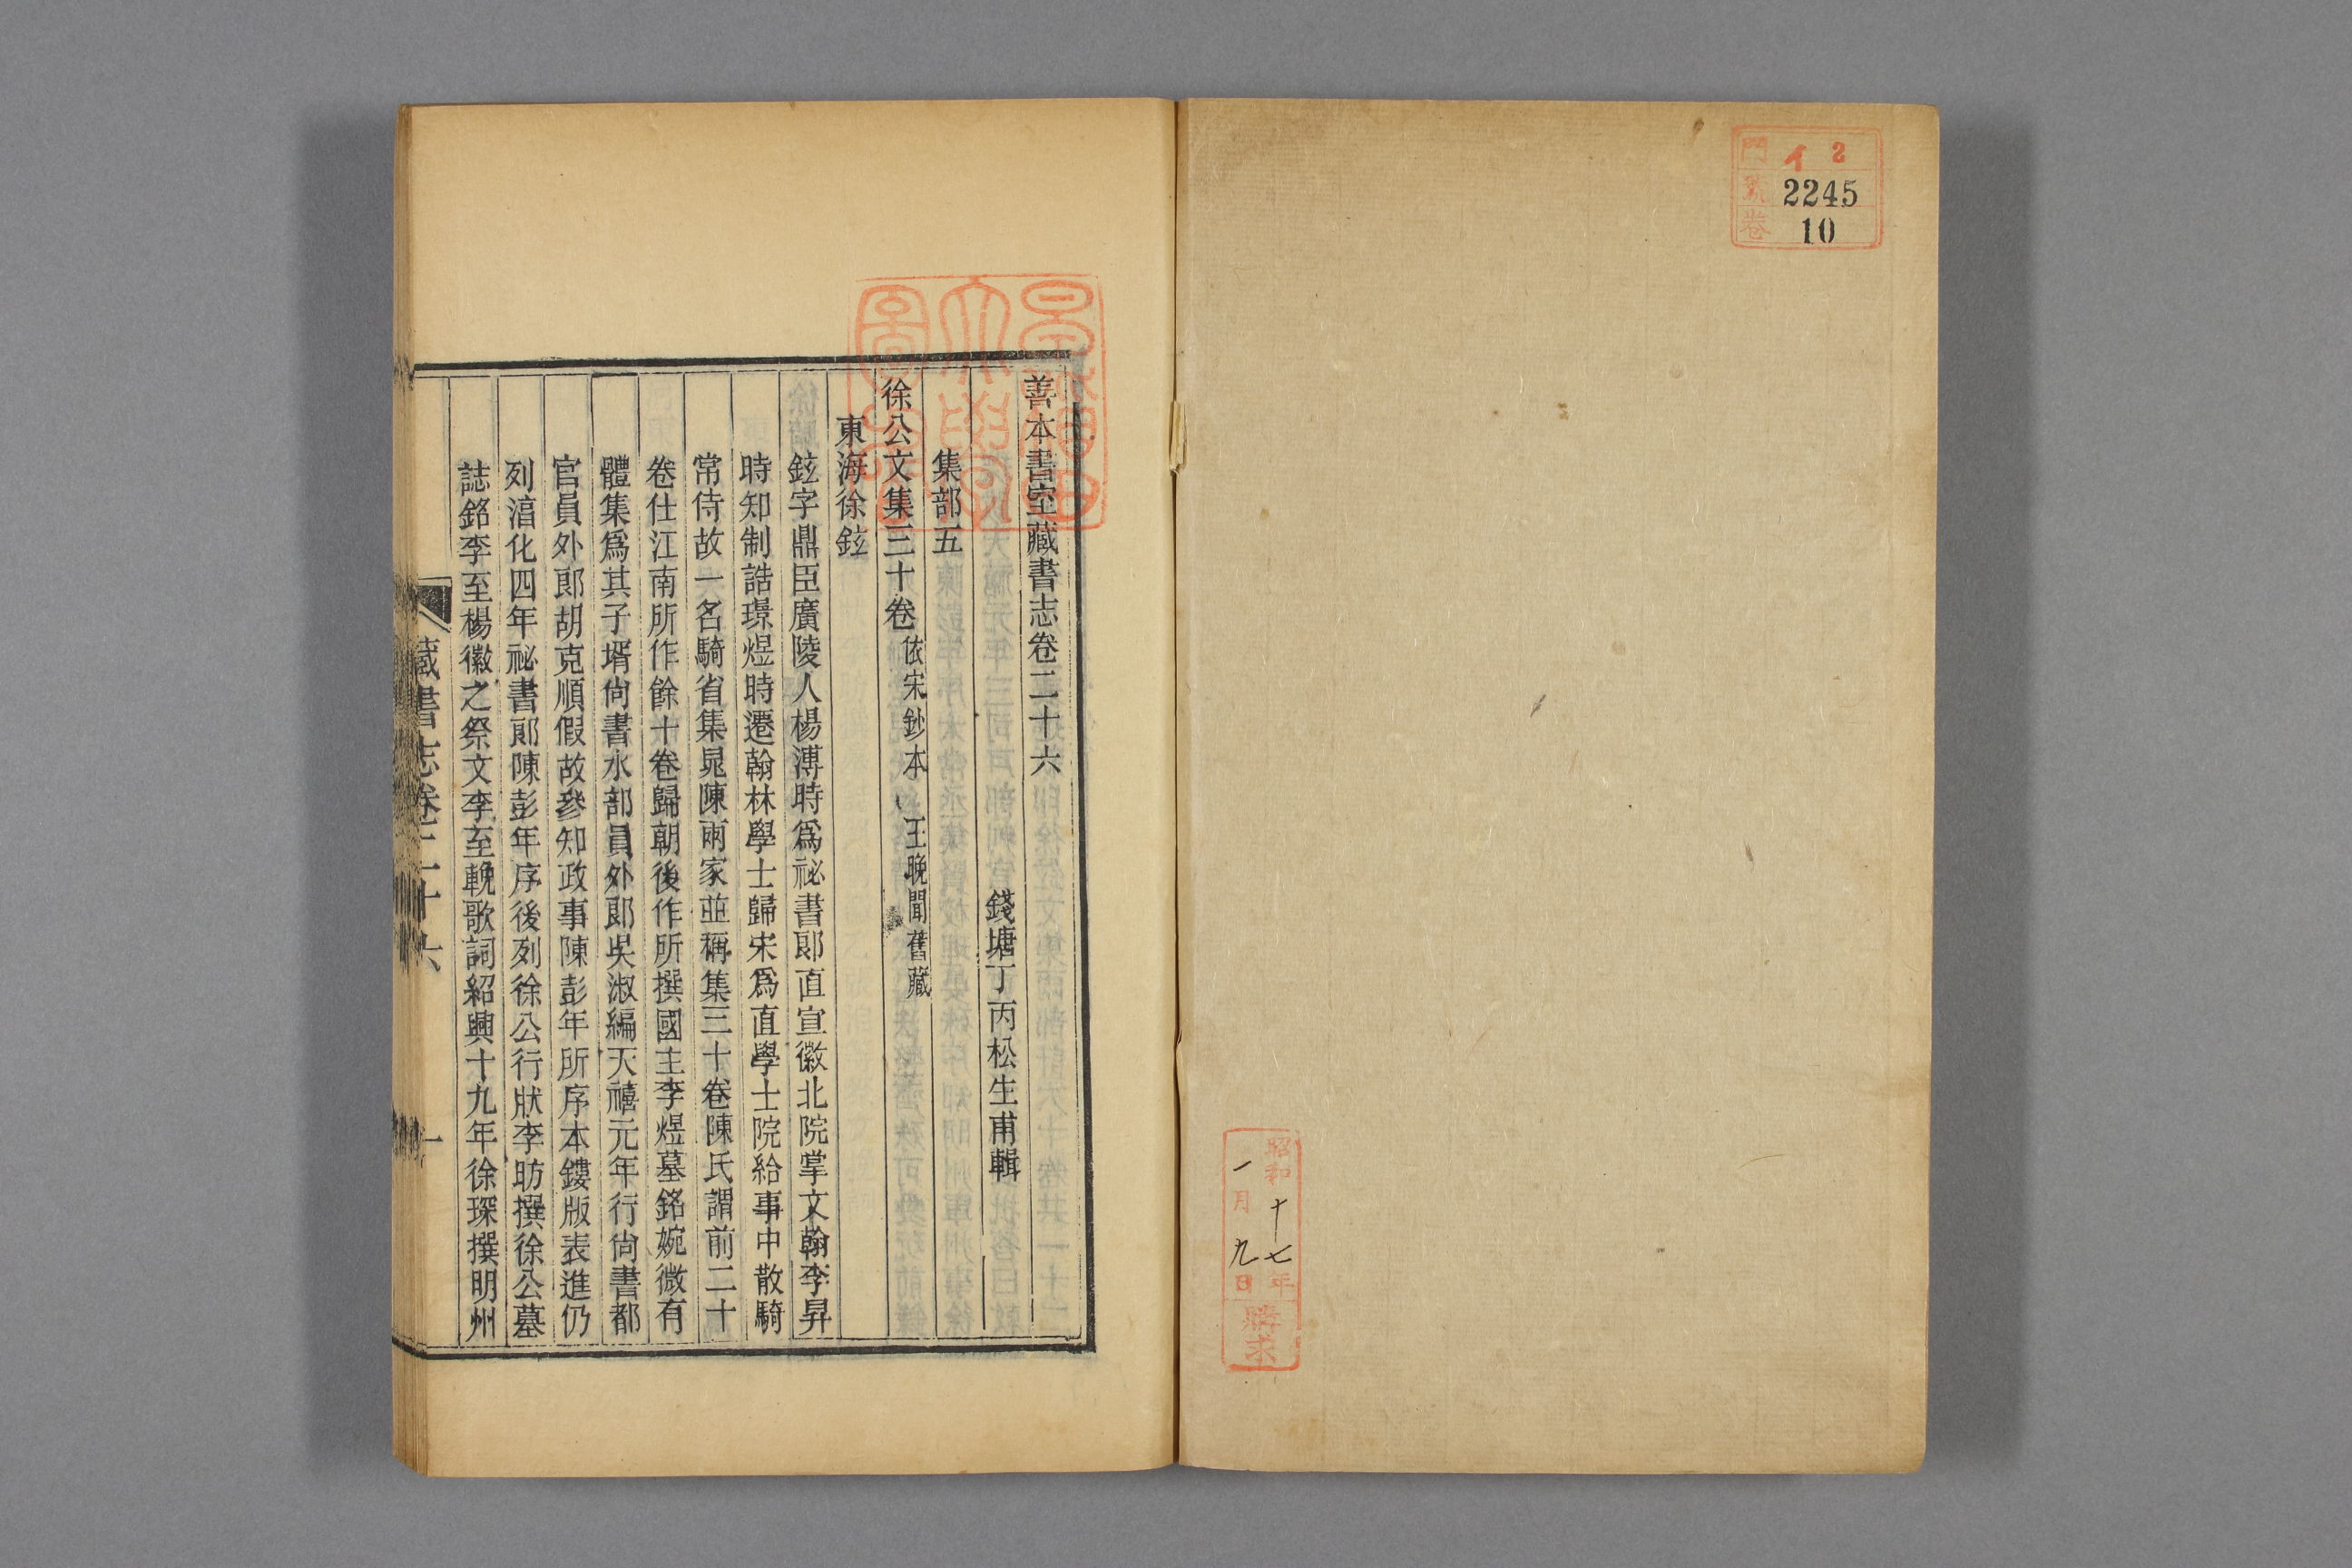 門 イ 2
號 2245
卷 10
昭和十七年
一月九日
購求
善本書室藏書志卷二十六
錢塘丁丙松生甫輯
集部五
徐公文集三十卷 依宋鈔本 王晚聞舊藏
東海徐鉉
鉉字鼎臣廣陵人楊溥時爲祕書郞直宣徽北院掌文翰李昇
時知制誥璟煜時遷翰林學士歸宋爲直學士院給事中散騎
常侍故一名騎省集晁陳兩家並稱集三十卷陳氏謂前二十
卷仕江南所作餘十卷歸朝後作所撰國主李煜墓銘婉微有
體集爲其子壻尙書水部員外郞吳淑編天禧元年行尙書都
官員外郞胡克順假故參知政事陳彭年所序本鏤版表進仍
列淳化四年祕書郞陳彭年序後列徐公行狀李昉撰徐公墓
誌銘李至楊徽之祭文李至輓歌詞紹興十九年徐琛撰明州
藏書志卷二十六 一